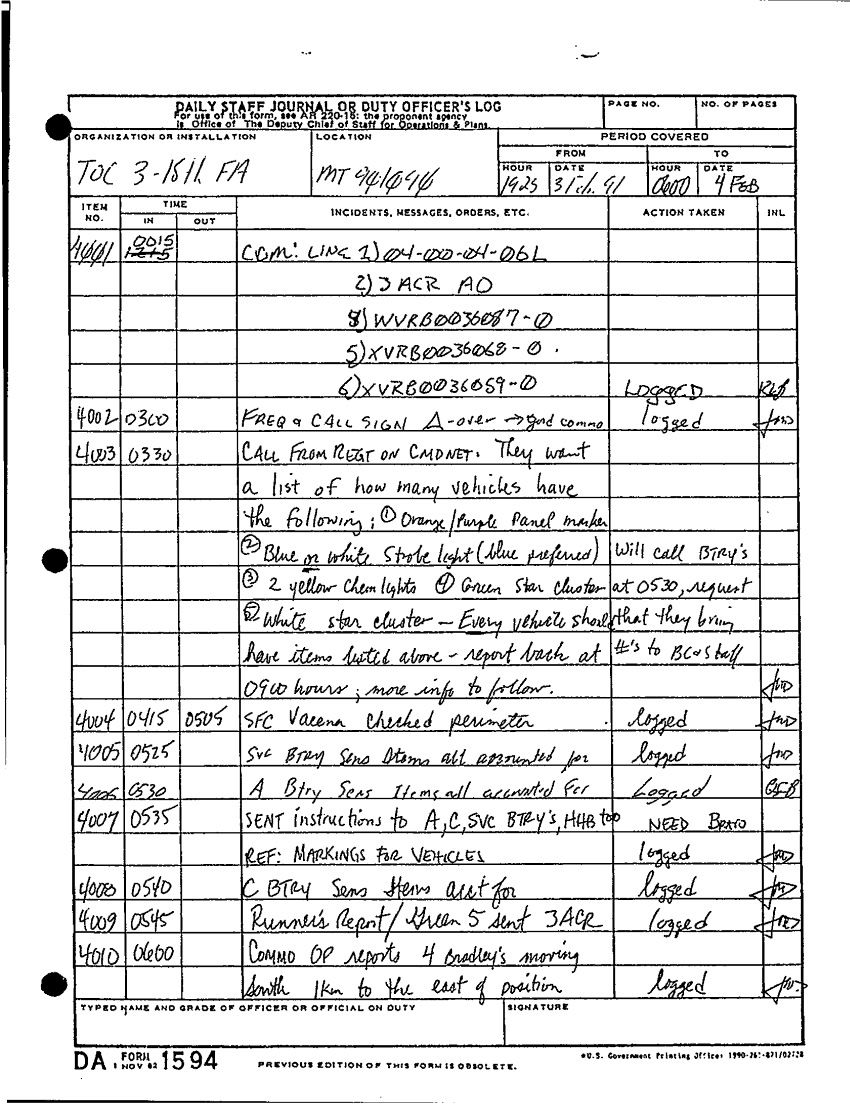 DAILY STAFF JOURNAL OR DUTY OFFICER'S LOG
For use of this form, see AR 220-15; the proponent agency
is Office of The Deputy Chief of Staff for Operations & Plans.
PAGE NO.
NO. OF PAGES
ORGANIZATION OR INSTALLATION
TOC 3-18th FA
LOCATION
PERIOD COVERED
FROM
TO
HOUR
1925
DATE
HOUR
0600
DATE
4 FEB
ITEM NO.
TIME
IN
OUT
INCIDENTS, MESSAGES, ORDERS, ETC.
ACTION TAKEN
INL
4001 0015 COM: LINE 1) 04-00-04-06L
2) 3 ACR AO
8) WVRB0036087-0
5) XVRB0036068-0.
6) XVRB0036059-0 LOGGED
4002 0300 FREQ & CALL SIGN Δ-over → good commo logged
4003 0330 CALL FROM REGT ON CMDNET. They want
a list of how many vehicles have
the following; ① Orange/Purple Panel marker
② Blue or white Strobe light (blue preferred) Will call BTRY's
③ 2 yellow Chem lights ④ Green Star cluster at 0530, request
⑤ White star cluster — Every vehicle should that they bring
have items listed above - report back at #'s to BC & Staff
0900 hours; more info to follow.
4004 0415 0505 SFC Vacena checked perimeter logged
4005 0525 Svc BTRY Sens Items all accounted for logged
4006 0530 A Btry Sens Items all accounted For Logged
4007 0535 SENT instructions to A, C, SVC BTRY's, HHB too NEED BRAVO
REF: MARKINGS FOR VEHICLES logged
4008 0540 C BTRY Sens Items acct for logged
4009 0545 Runner's Report/Green 5 sent 3ACR logged
4010 0600 COMMO OP reports 4 Bradley's moving
South 1km to the east of position logged
TYPED NAME AND GRADE OF OFFICER OR OFFICIAL ON DUTY
SIGNATURE
DA FORM 1 NOV 62 1594
PREVIOUS EDITION OF THIS FORM IS OBSOLETE.